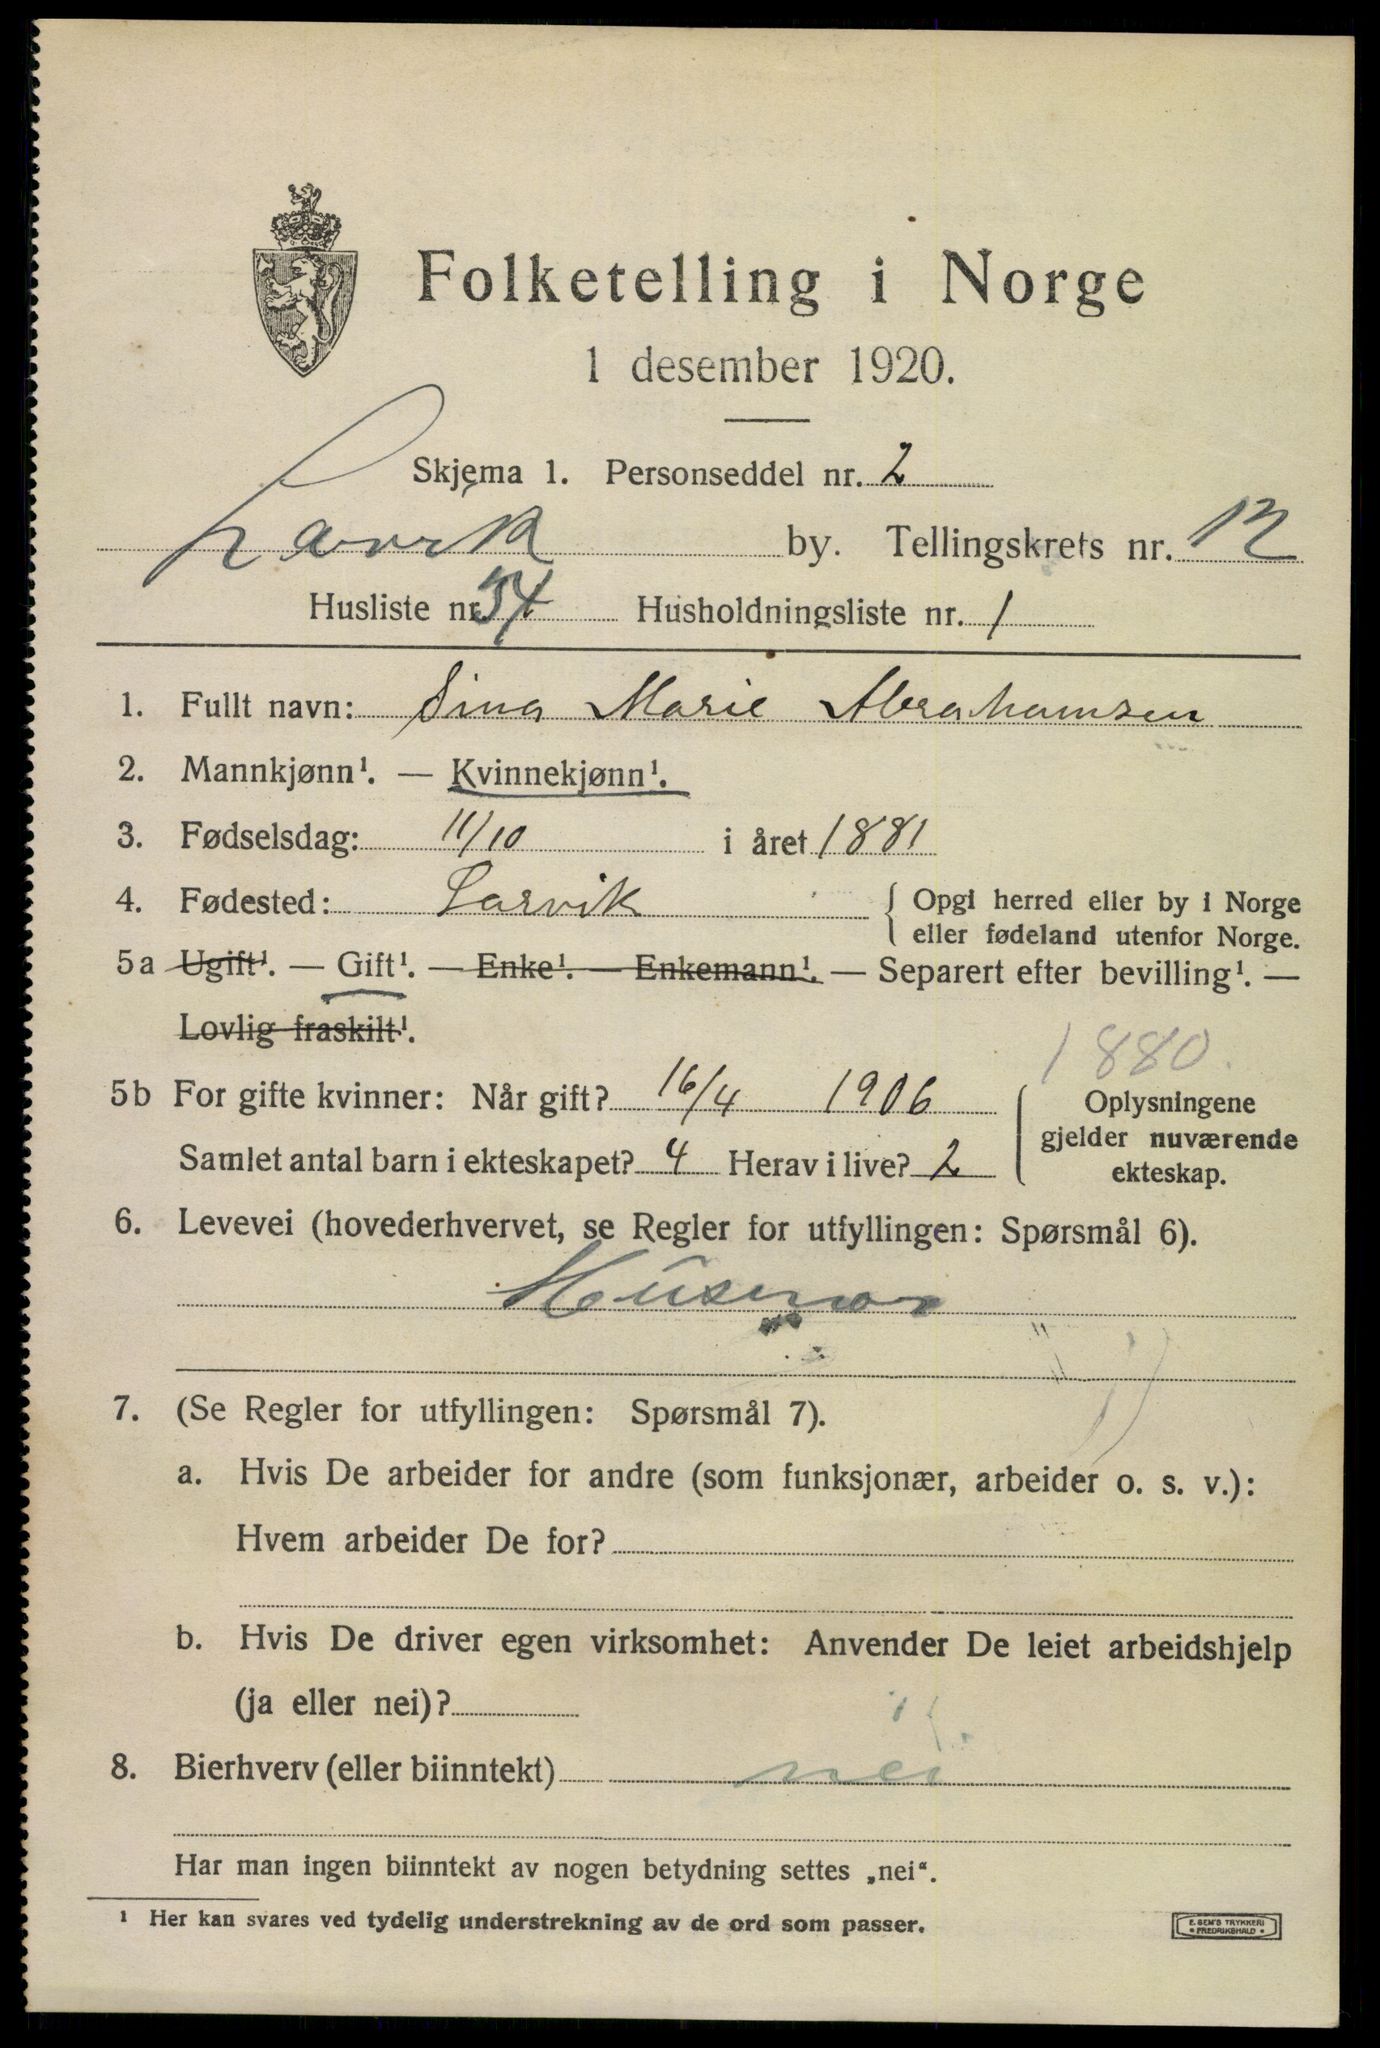 Folketelling i Norge
1 desember 1920.
Skjema 1. Personseddel nr. 2
Larvik by. Tellingskrets nr. 12
Husliste nr. 34 Husholdningsliste nr. 1
1. Fullt navn: Sina Marie Abrahamsen
2. Mannkjønn¹. — Kvinnekjønn¹.
3. Fødselsdag: 11/10 i året 1881
4. Fødested: Larvik { Opgi herred eller by i Norge
eller fødeland utenfor Norge.
5a Ugift¹. — Gift¹. — Enke¹. — Enkemann¹. — Separert efter bevilling¹. —
Lovlig fraskilt¹.
1880.
5b For gifte kvinner: Når gift? 16/4 1906
Samlet antal barn i ekteskapet? 4 Herav i live? 2
Oplysningene
gjelder nuværende
ekteskap.
6. Levevei (hovederhvervet, se Regler for utfyllingen: Spørsmål 6).
Husmor
7. (Se Regler for utfyllingen: Spørsmål 7).
a. Hvis De arbeider for andre (som funksjonær, arbeider o. s. v.):
Hvem arbeider De for?
b. Hvis De driver egen virksomhet: Anvender De leiet arbeidshjelp
(ja eller nei)?
8. Bierhverv (eller biinntekt) nei
Har man ingen biinntekt av nogen betydning settes „nei“.
¹ Her kan svares ved tydelig understrekning av de ord som passer.
E. SEM'S TRYKKERI
• FREDRIKSHALD •